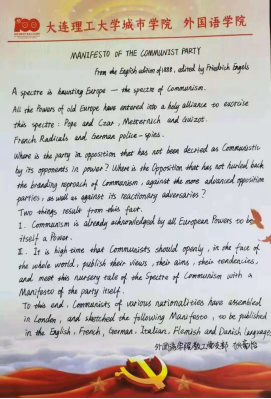 大连理工大学城市学院 外国语学院
MANIFESTO OF THE COMMUNIST PARTY
From the English edition of 1888, edited by Friedrich Engels
A spectre is haunting Europe — the spectre of Communism.
All the Powers of old Europe have entered into a holy alliance to exorcise
this spectre: Pope and Czar, Metternich and Guizot,
French Radicals and German police-spies.
Where is the party in opposition that has not been decried as Communistic
by its opponents in power? Where is the Opposition that has not hurled back
the branding reproach of Communism, against the more advanced opposition
parties, as well as against its reactionary adversaries?
Two things result from this fact.
I. Communism is already acknowledged by all European Powers to be
itself a Power.
II. It is high time that Communists should openly, in the face of
the whole world, publish their views, their aims, their tendencies,
and meet this nursery tale of the Spectre of Communism with a
Manifesto of the party itself.
To this end, Communists of various nationalities have assembled
in London, and sketched the following Manifesto, to be published
in the English, French, German, Italian, Flemish and Danish languages.
外国语学院教工党支部